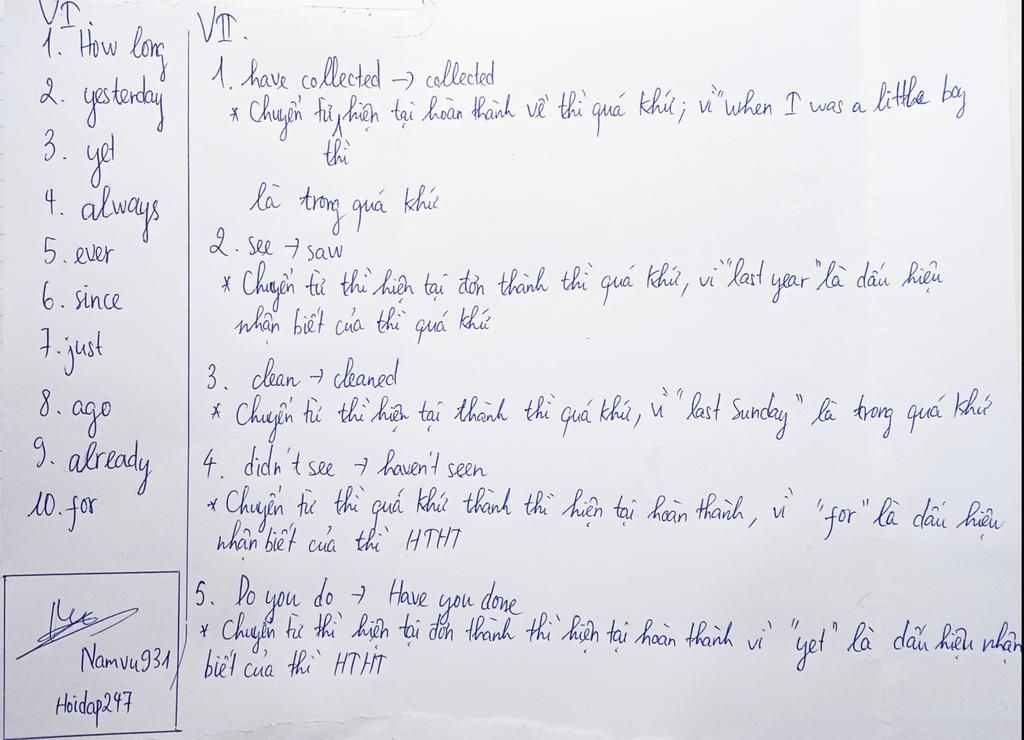 VI.
1. How long
2. yesterday
3. yet
4. always
5. ever
6. since
7. just
8. ago
9. already
10. for
Namvu931
Hoidap247
VII.
1. have collected → collected
* Chuyển từ thì hiện tại hoàn thành về thì quá khứ; vì "when I was a little boy
là trong quá khứ
2. see → saw
* Chuyển từ thì hiện tại đơn thành thì quá khứ, vì "last year" là dấu hiệu
nhận biết của thì quá khứ
3. clean → cleaned
* Chuyển từ thì hiện tại thành thì quá khứ, vì "last Sunday" là trong quá khứ
4. didn't see → haven't seen
* Chuyển từ thì quá khứ thành thì hiện tại hoàn thành, vì "for" là dấu hiệu
nhận biết của thì HTHT
5. Do you do → Have you done
* Chuyển từ thì hiện tại đơn thành thì hiện tại hoàn thành vì "yet" là dấu hiệu nhận
biết của thì HTHT